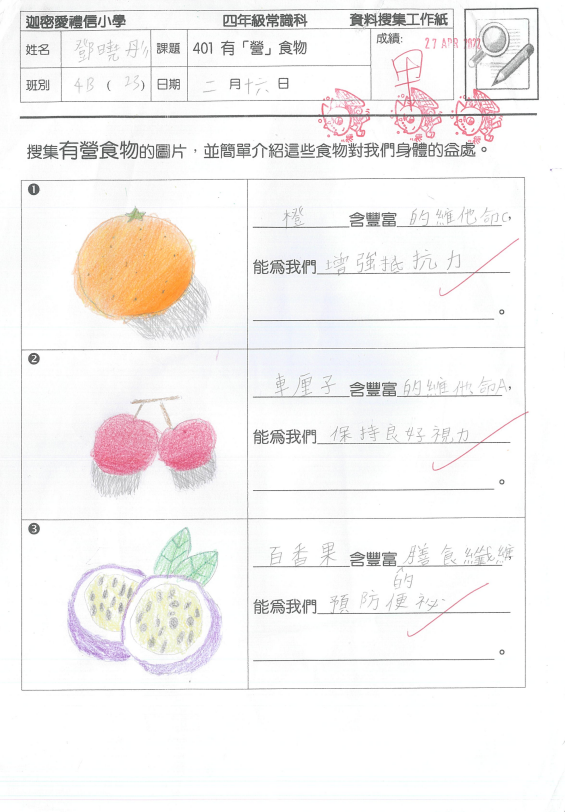 迦密愛禮信小學 四年級常識科 資料搜集工作紙
姓名 鄧曉彤 課題 401 有「營」食物 成績: 甲
27 APR 2022
班別 4B ( 23 ) 日期 二 月 十六 日
搜集有營食物的圖片，並簡單介紹這些食物對我們身體的益處。
❶
橙 含豐富 的維他命C，
能為我們 增強抵抗力
。
❷
車厘子 含豐富 的維他命A，
能為我們 保持良好視力
。
❸
百香果 含豐富 的膳食纖維，
能為我們 預防便祕
。